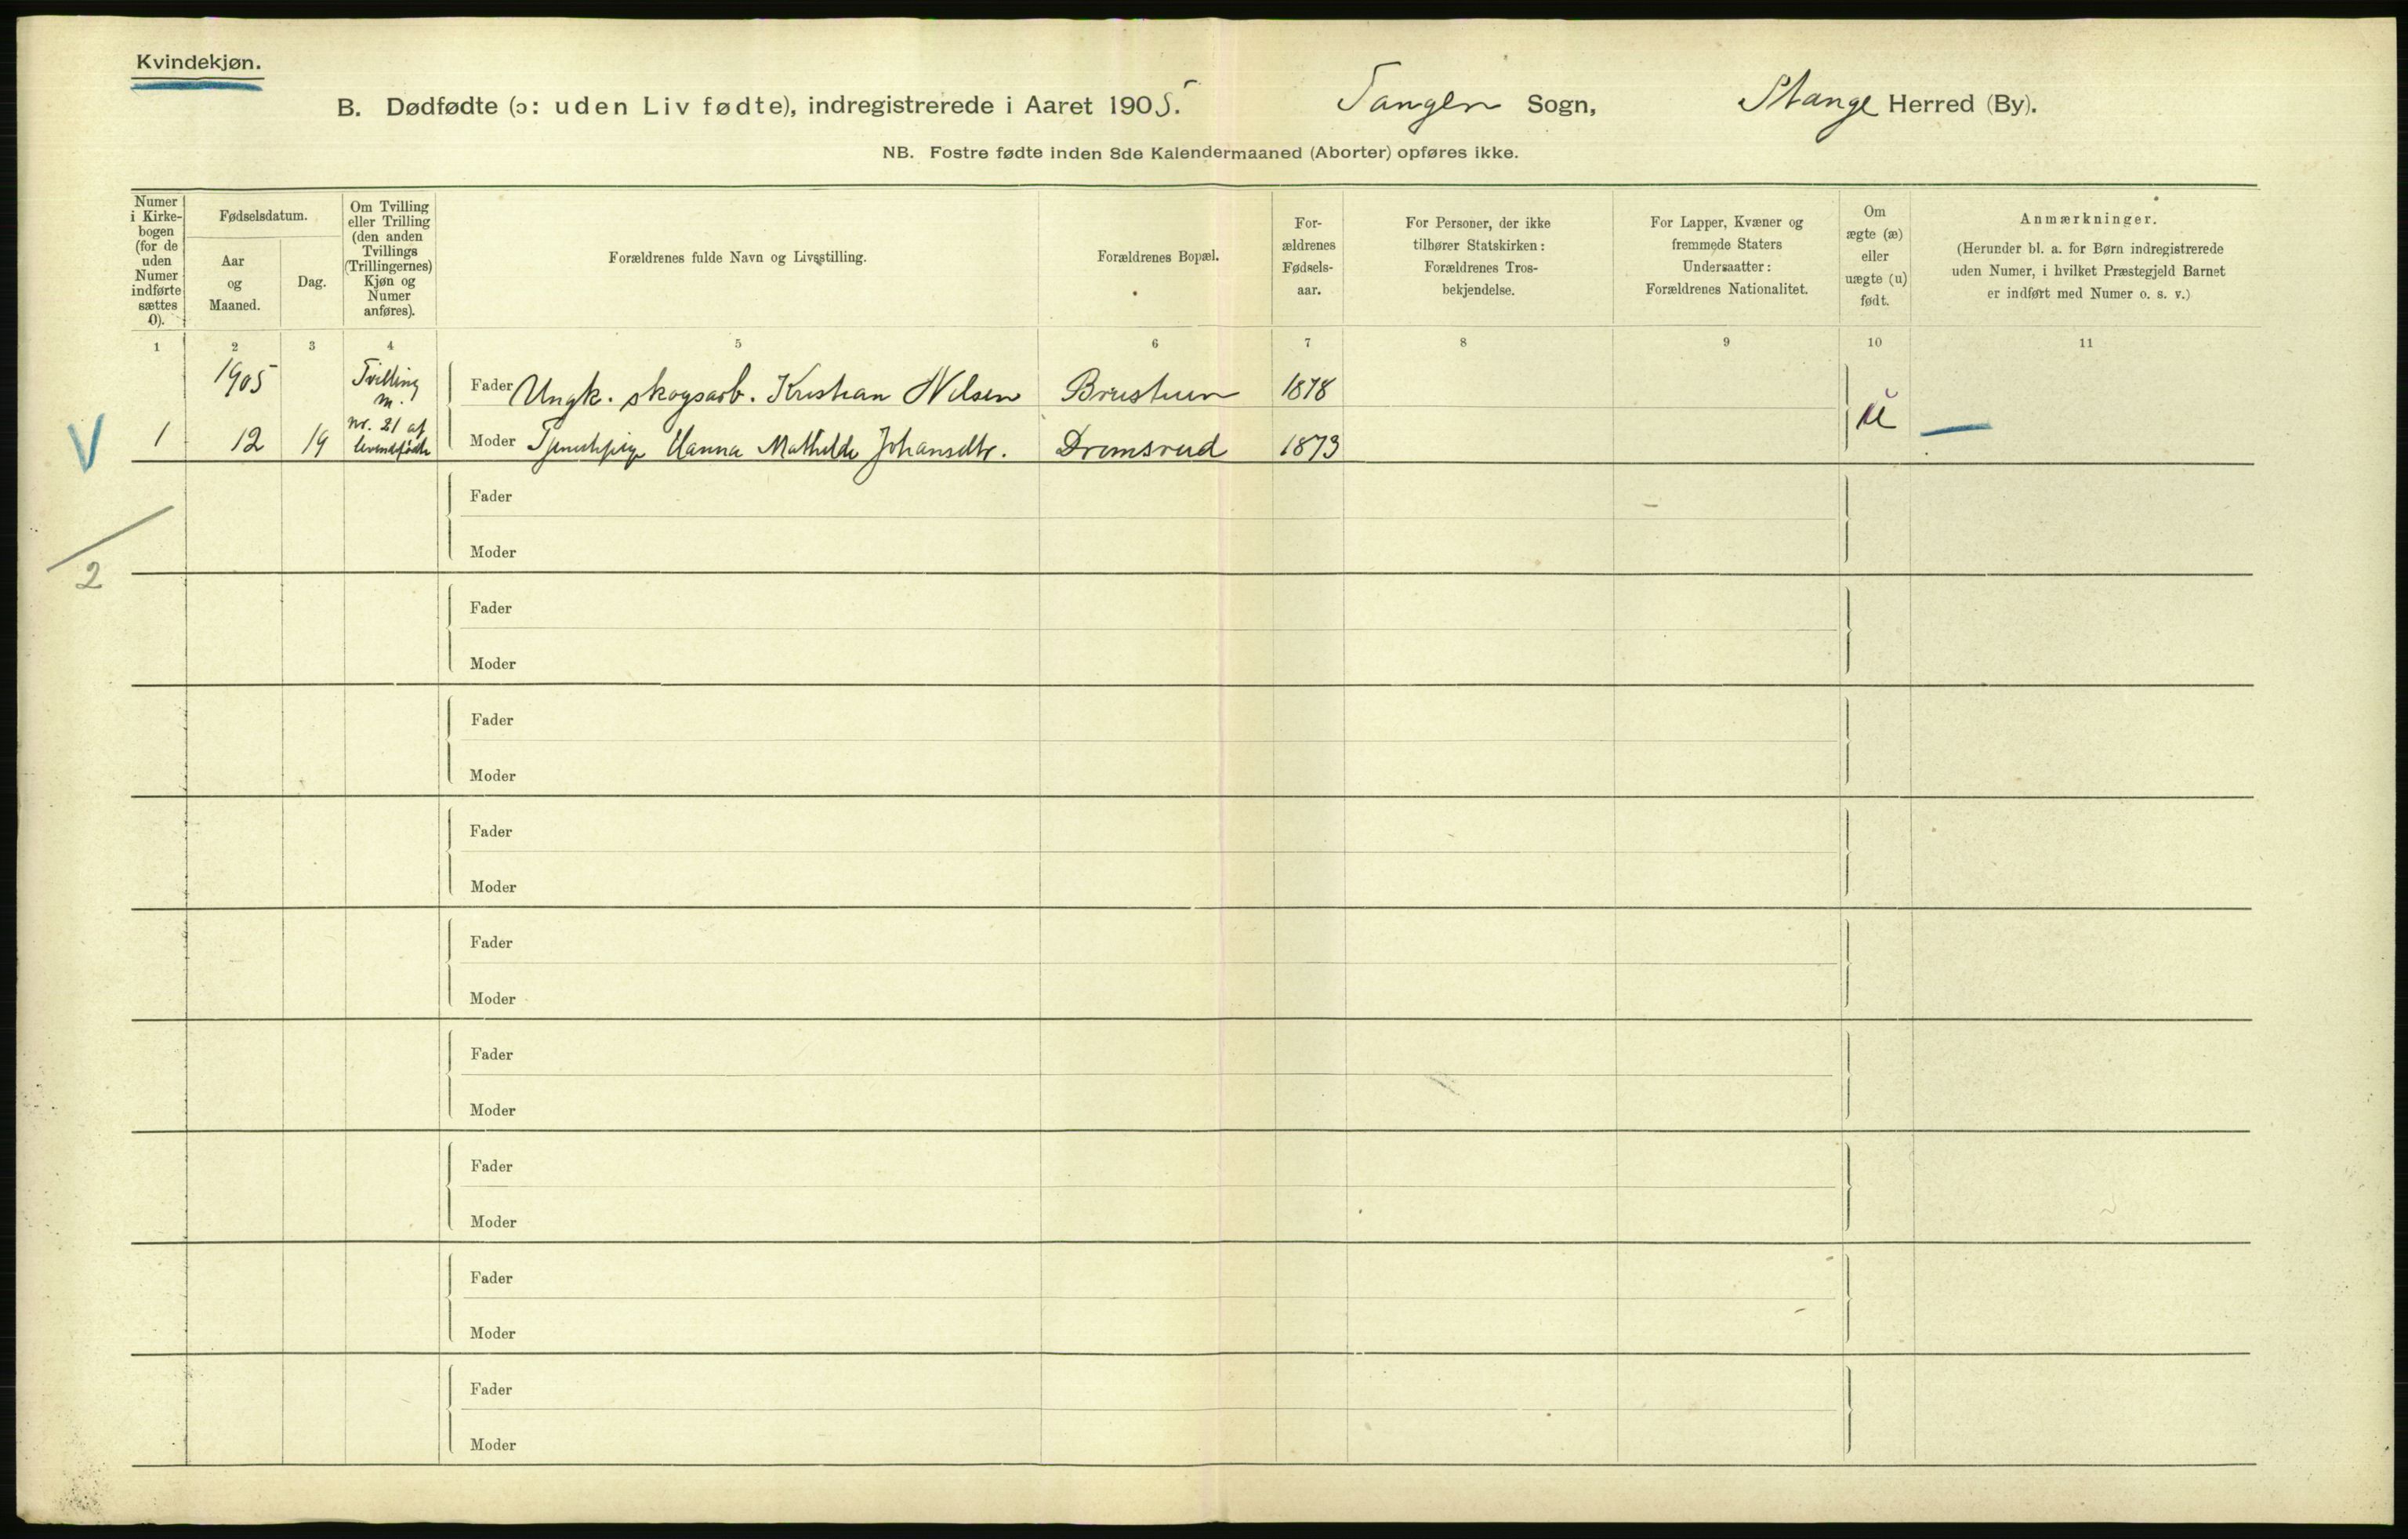 Kvindekjøn.
B. Dødfødte (ɔ: uden Liv fødte), indregistrerede i Aaret 1905. Tangen Sogn, Stange Herred (By).
NB. Fostre fødte inden 8de Kalendermaaned (Aborter) opføres ikke.
Numer
i Kirke-
bogen
(for de
uden
Numer
indførte
sættes
0).
Fødselsdatum.
Aar
og
Maaned.
Dag.
Om Tvilling
eller Trilling
(den anden
Tvillings
(Trillingernes)
Kjøn og
Numer
anføres).
Forældrenes fulde Navn og Livsstilling.
Forældrenes Bopæl.
For-
ældrenes
Fødsels-
aar.
For Personer, der ikke
tilhører Statskirken:
Forældrenes Tros-
bekjendelse.
For Lapper, Kvæner og
fremmede Staters
Undersaatter:
Forældrenes Nationalitet.
Om
ægte (æ)
eller
uægte (u)
født.
Anmærkninger.
(Herunder bl. a. for Børn indregistrerede
uden Numer, i hvilket Præstegjeld Barnet
er indført med Numer o. s. v.)
1 2 3 4 5 6 7 8 9 10 11
1905 Tvilling
m.
Fader Ungk. skogsarb. Kristian Nilsen Brustuen 1878
nr. 21 af
levendefødte
V 1 12 19 Moder Tjenestepige Hanna Mathilde Johansdtr. Dromsrud 1873 u
Fader
Moder
2
Fader
Moder
Fader
Moder
Fader
Moder
Fader
Moder
Fader
Moder
Fader
Moder
Fader
Moder
Fader
Moder